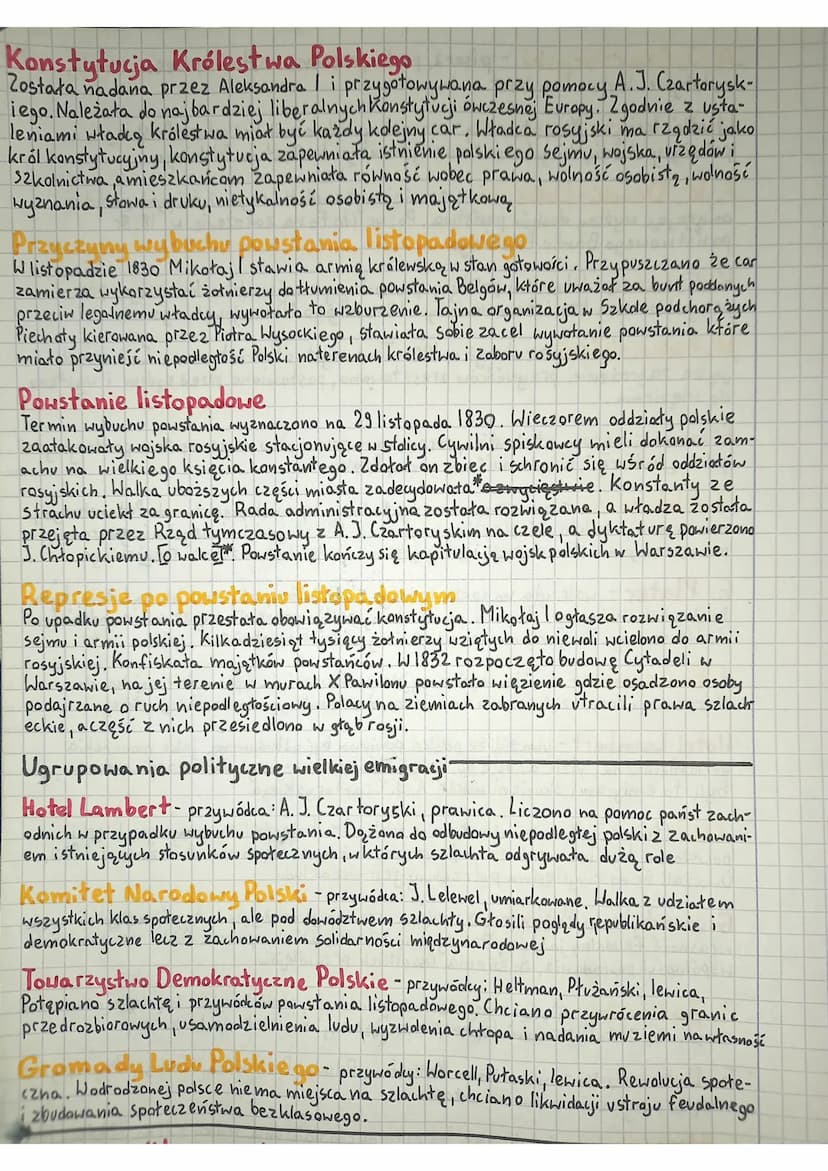 Konstytucja Królestwa Polskiego
Została nadana przez Aleksandra I i przygotowywana przy pomocy A.J. Czartorysk-
iego. Należała do najbardziej liberalnych Konstytucji ówczesnej Europy. Zgodnie z usta-
leniami władcą królestwa miał być każdy kolejny car. Władca rosyjski ma rządzić jako
król konstytucyjny, konstytucja zapewniała istnienie polskiego sejmu, wojska, urzędów i
szkolnictwa, a mieszkańcom zapewniała równość wobec prawa, wolność osobistą, wolność
wyznania, słowa i druku, nietykalność osobistą i majątkową
Przyczyny wybuchu powstania listopadowego
W listopadzie 1830 Mikołaj I stawia armię królewską w stan gotowości. Przypuszczano że car
zamierza wykorzystać żołnierzy do tłumienia powstania Belgów, które uważał za bunt poddanych
przeciw legalnemu władcy, wywołało to wzburzenie. Tajna organizacja w Szkole podchorążych
Piechoty kierowana przez Piotra Wysockiego, stawiała sobie za cel wywołanie powstania które
miało przynieść niepodległość Polski na terenach królestwa i zaboru rosyjskiego.
Powstanie listopadowe
Termin wybuchu powstania wyznaczono na 29 listopada 1830. Wieczorem oddziały polskie
zaatakowały wojska rosyjskie stacjonujące w stolicy. Cywilni spiskowcy mieli dokonać zam-
achu na wielkiego księcia konstantego. Zdołał on zbiec i schronić się wśród oddziałów
rosyjskich. Walka uboższych części miasta zadecydowała* o zwycięstwie. Konstanty ze
strachu uciekł za granicę. Rada administracyjna została rozwiązana, a władza została
przejęta przez Rząd tymczasowy z A.J. Czartoryskim na czele, a dyktaturę powierzono
J. Chłopickiemu. [o walce]*. Powstanie kończy się kapitulacją wojsk polskich w Warszawie.
Represje po powstaniu listopadowym
Po upadku powstania przestała obowiązywać konstytucja. Mikołaj I ogłasza rozwiązanie
sejmu i armii polskiej. Kilkadziesiąt tysięcy żołnierzy wziętych do niewoli wcielono do armii
rosyjskiej. Konfiskata majątków powstańców. W 1832 rozpoczęto budowę Cytadeli w
Warszawie, na jej terenie w murach X Pawilonu powstało więzienie gdzie osadzono osoby
podajrzane o ruch niepodległościowy. Polacy na ziemiach zabranych utracili prawa szlach
eckie, a część z nich przesiedlono w głąb rosji.
Ugrupowania polityczne wielkiej emigracji
Hotel Lambert - przywódca: A.J. Czartoryski, prawica. Liczono na pomoc państ zach-
odnich w przypadku wybuchu powstania. Dążana do odbudowy niepodległej polski z zachowani-
em istniejących stosunków społecznych, w których szlachta odgrywała dużą role
Komitet Narodowy Polski - przywódca: J. Lelewel, umiarkowane. Walka z udziałem
wszystkich klas społecznych, ale pod dowództwem szlachty. Głosili poglądy republikańskie i
demokratyczne lecz z zachowaniem solidarności międzynarodowej
Towarzystwo Demokratyczne Polskie - przywódcy: Heltman, Płużański, lewica,
Potępiano szlachtę i przywódców powstania listopadowego. Chciano przywrócenia granic
przedrozbiorowych, usamodzielnienia ludu, wyzwolenia chłopa i nadania mu ziemi na własność
Gromady Ludu Polskiego - przywódy: Worcell, Pułaski, lewica. Rewolucja społe-
czna. W odrodzonej polsce nie ma miejsca na szlachtę, chciano likwidacji ustroju feudalnego
i zbudowania społeczeństwa bezklasowego.